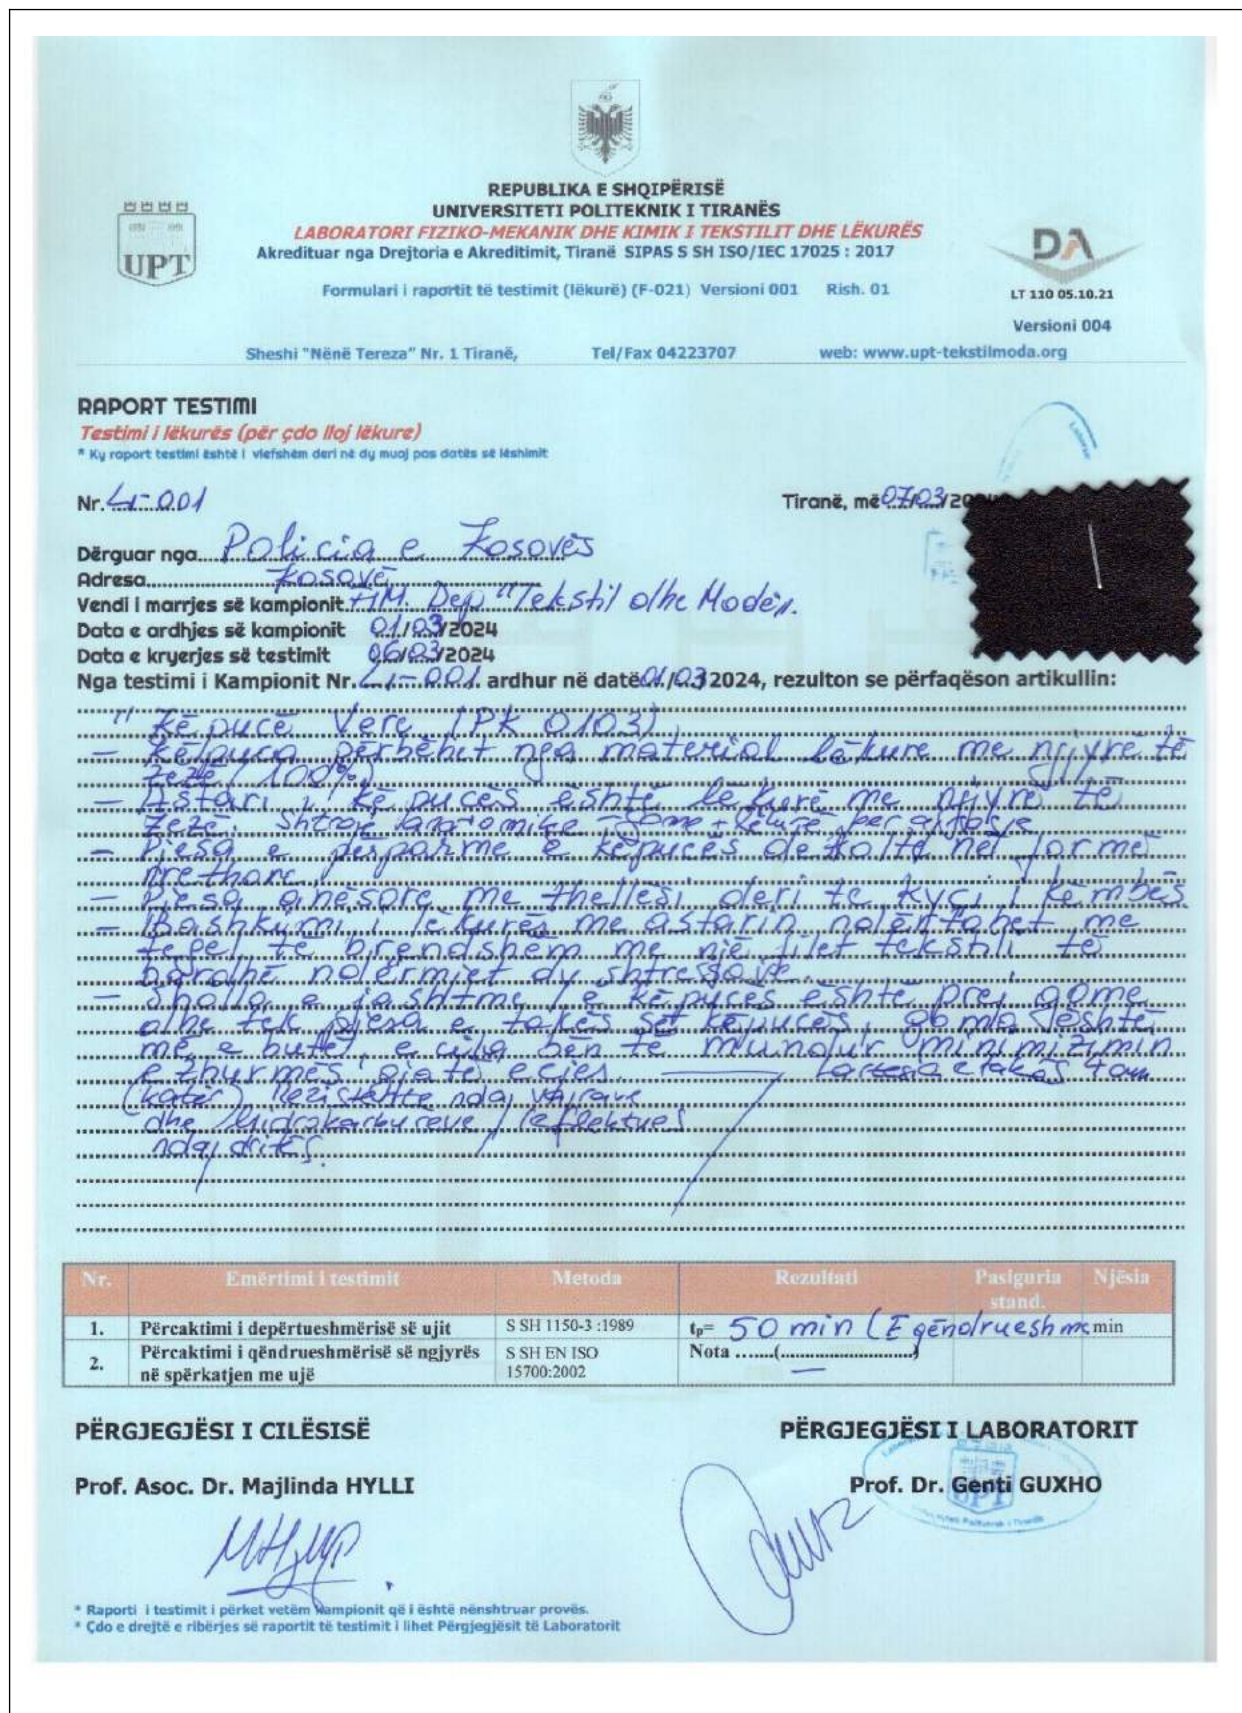 REPUBLIKA E SHQIPËRISË
UNIVERSITETI POLITEKNIK I TIRANËS
LABORATORI FIZIKO-MEKANIK DHE KIMIK I TEKSTILIT DHE LËKURËS
Akredituar nga Drejtoria e Akreditimit, Tiranë SIPAS S SH ISO/IEC 17025 : 2017
UPT
DA
Formulari i raportit të testimit (lëkurë) (F-021) Versioni 001 Rish. 01
LT 110 05.10.21
Versioni 004
Sheshi "Nënë Tereza" Nr. 1 Tiranë, Tel/Fax 04223707 web: www.upt-tekstilmoda.org
RAPORT TESTIMI
Testimi i lëkurës (për çdo lloj lëkure)
* Ky raport testimi është i vlefshëm deri në dy muaj pas datës së lëshimit
Nr. L-001 Tiranë, më 07/03/20
Dërguar nga Policia e Kosovës
Adresa Kosovë
Vendi i marrjes së kampionit FIM. Dep "Tekstil dhe Modës.
Data e ardhjes së kampionit 01/03/2024
Data e kryerjes së testimit 06/03/2024
Nga testimi i Kampionit Nr. L-001 ardhur në datë 01/03/2024, rezulton se përfaqëson artikullin:
" Këpucë Vere (PK 0103)
- Këpuca përbëhet nga material lëkure me ngjyrë të
zezë (100%)
- Astari i këpucës është lëkurë me ngjyrë të
zezë. Shtrojë anatomike - gome + lëkurë për
- Pjesa e përparme e këpucës në formë
rrethore
- Pjesa anësore me thellësi deri te kyçi i këmbës
- Bashkimi i lëkurës me astarin me
tegel të brendshëm me një filet tekstili të
bardhë ndërmjet dy shtresave.
- Sholla e jashtme e këpucës është prej gome
dhe tek pjesa e takës së këpucës, është
më e butë, e cila bën të mundur minimizimin
e zhurmës gjatë ecjes. Lartësia e takës 4 cm
(katër) Rezistente ndaj vajrave
dhe hidrokarbureve, reflektues
ndaj dritës.
Nr. Emërtimi i testimit Metoda Rezultati Pasiguria stand. Njësia
1. Përcaktimi i depërtueshmërisë së ujit S SH 1150-3 :1989 tp= 50 min (E qëndrueshme min
2. Përcaktimi i qëndrueshmërisë së ngjyrës në spërkatjen me ujë S SH EN ISO 15700:2002 Nota ......(..............................) —
PËRGJEGJËSI I CILËSISË PËRGJEGJËSI I LABORATORIT
Prof. Asoc. Dr. Majlinda HYLLI Prof. Dr. Genti GUXHO
UPT
* Raporti i testimit i përket vetëm kampionit që i është nënshtruar provës.
* Çdo e drejtë e ribërjes së raportit të testimit i lihet Përgjegjësit të Laboratorit